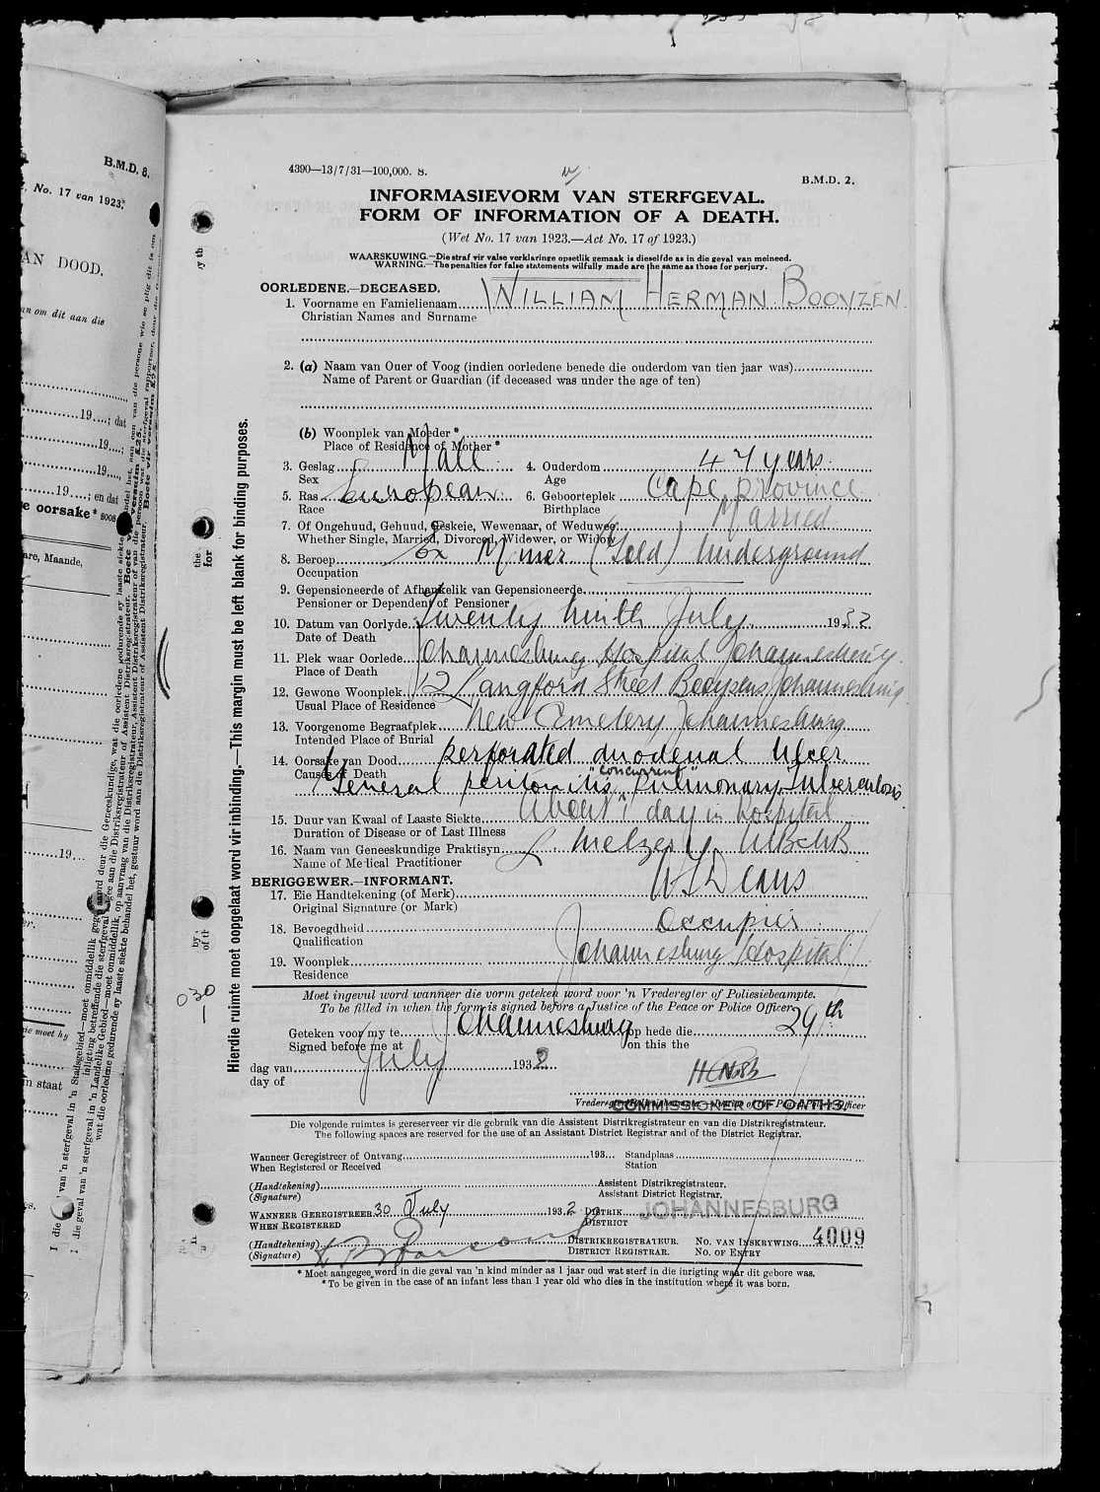 B.M.D. 8.
No. 17 van 1923.
AN DOOD.
4390—13/7/31—100,000. S.
B.M.D. 2.
INFORMASIEVORM VAN STERFGEVAL.
FORM OF INFORMATION OF A DEATH.
(Wet No. 17 van 1923.—Act No. 17 of 1923.)
WAARSKUWING.—Die straf vir valse verklaringe opsetlik gemaak is dieselfde as in die geval van meineed.
WARNING.—The penalties for false statements wilfully made are the same as those for perjury.
OORLEDENE.—DECEASED.
1. Voornaam en Familienaam WILLIAM HERMAN BOOYZEN
Christian Names and Surname
2. (a) Naam van Ouer of Voog (indien oorledene benede die ouderdom van tien jaar was)
Name of Parent or Guardian (if deceased was under the age of ten)
(b) Woonplek van Moeder*
Place of Residence of Mother*
3. Geslag Male 4. Ouderdom 47 years
Sex Age
5. Ras European 6. Geboorteplek Cape Province
Race Birthplace
7. Of Ongehuud, Gehuud, Geskeie, Wewenaar, of Weduwee Married
Whether Single, Married, Divorced, Widower, or Widow
8. Beroep Ex Miner (Gold) Underground
Occupation
9. Gepensioneerde of Afhankelik van Gepensioneerde
Pensioner or Dependent of Pensioner
10. Datum van Oorlyde Twenty ninth July 1932
Date of Death
11. Plek waar Oorlede Johannesburg Hospital Johannesburg
Place of Death
12. Gewone Woonplek 12 Langford Street Booysens Johannesburg
Usual Place of Residence
13. Voorgenome Begraafplek New Cemetery Johannesburg
Intended Place of Burial
14. Oorsake van Dood perforated duodenal Ulcer
Causes of Death
General peritonitis "concurrent" Pulmonary Tuberculosis
15. Duur van Kwaal of Laaste Siekte About 1 day in hospital
Duration of Disease or of Last Illness
16. Naam van Geneeskundige Praktisyn MBChB
Name of Medical Practitioner
BERIGGEWER.—INFORMANT.
17. Eie Handtekening (of Merk) Deans
Original Signature (or Mark)
18. Bevoegdheid Occupier
Qualification
19. Woonplek Johannesburg Hospital
Residence
Moet ingevul word wanneer die vorm geteken word voor 'n Vrederegter of Poliesiebeampte.
To be filled in when the form is signed before a Justice of the Peace or Police Officer.
Geteken voor my te Johannesburg op hede die 29th
Signed before me at on this the
dag van July 1932
day of
COMMISSIONER OF OATHS.
Die volgende ruimtes is gereserveer vir die gebruik van die Assistent Distrikregistrateur en van die Distrikregistrateur.
The following spaces are reserved for the use of an Assistant District Registrar and of the District Registrar.
Wanneer Geregistreer of Ontvang 193 Standplaas
When Registered or Received Station
(Handtekening) Assistent Distrikregistrateur.
(Signature) Assistant District Registrar.
WANNEER GEREGISTREER 30 July 1932 DISTRIK JOHANNESBURG
WHEN REGISTERED DISTRICT
(Handtekening) DISTRIKREGISTRATEUR. No. VAN INSKRYWING 4009
(Signature) DISTRICT REGISTRAR. No. OF ENTRY
* Moet aangegee word in die geval van 'n kind minder as 1 jaar oud wat sterf in die inrigting waar dit gebore was.
* To be given in the case of an infant less than 1 year old who dies in the institution where it was born.
Hierdie ruimte moet oopgelaat word vir inbinding.—This margin must be left blank for binding purposes.